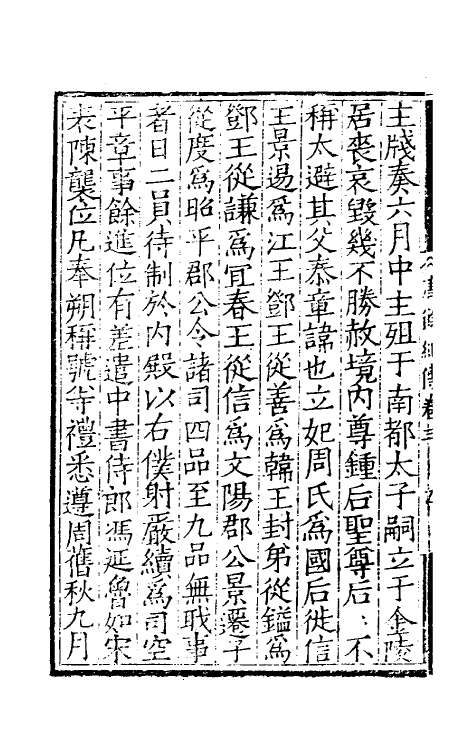 主牋奏六月中主殂于南都太子嗣立于金陵
居喪哀毀幾不勝赦境内尊鍾后聖尊后〻不
稱太避其父泰章諱也立妃周氏爲國后徙信
王景逿爲江王鄧王從善爲韓王封弟從鎰爲
鄧王從謙爲宜春王從信爲文陽郡公景遷子
從度爲昭平郡公令諸司四品至九品無職事
者日二員待制於内殿以右僕射嚴續爲司空
平章事餘進位有差遣中書侍郎馮延魯如宋
表陳襲位凡奉朔稱號等禮悉遵周舊秋九月